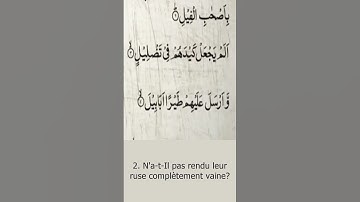 بِاَصْحٰبِ الْفِيْلِ
اَلَمْ يَجْعَلْ كَيْدَهُمْ فِيْ تَضْلِيْلٍ
وَّ اَرْسَلَ عَلَيْهِمْ طَيْرًا اَبَابِيْلَ
2. N'a-t-Il pas rendu leur
ruse complètement vaine?